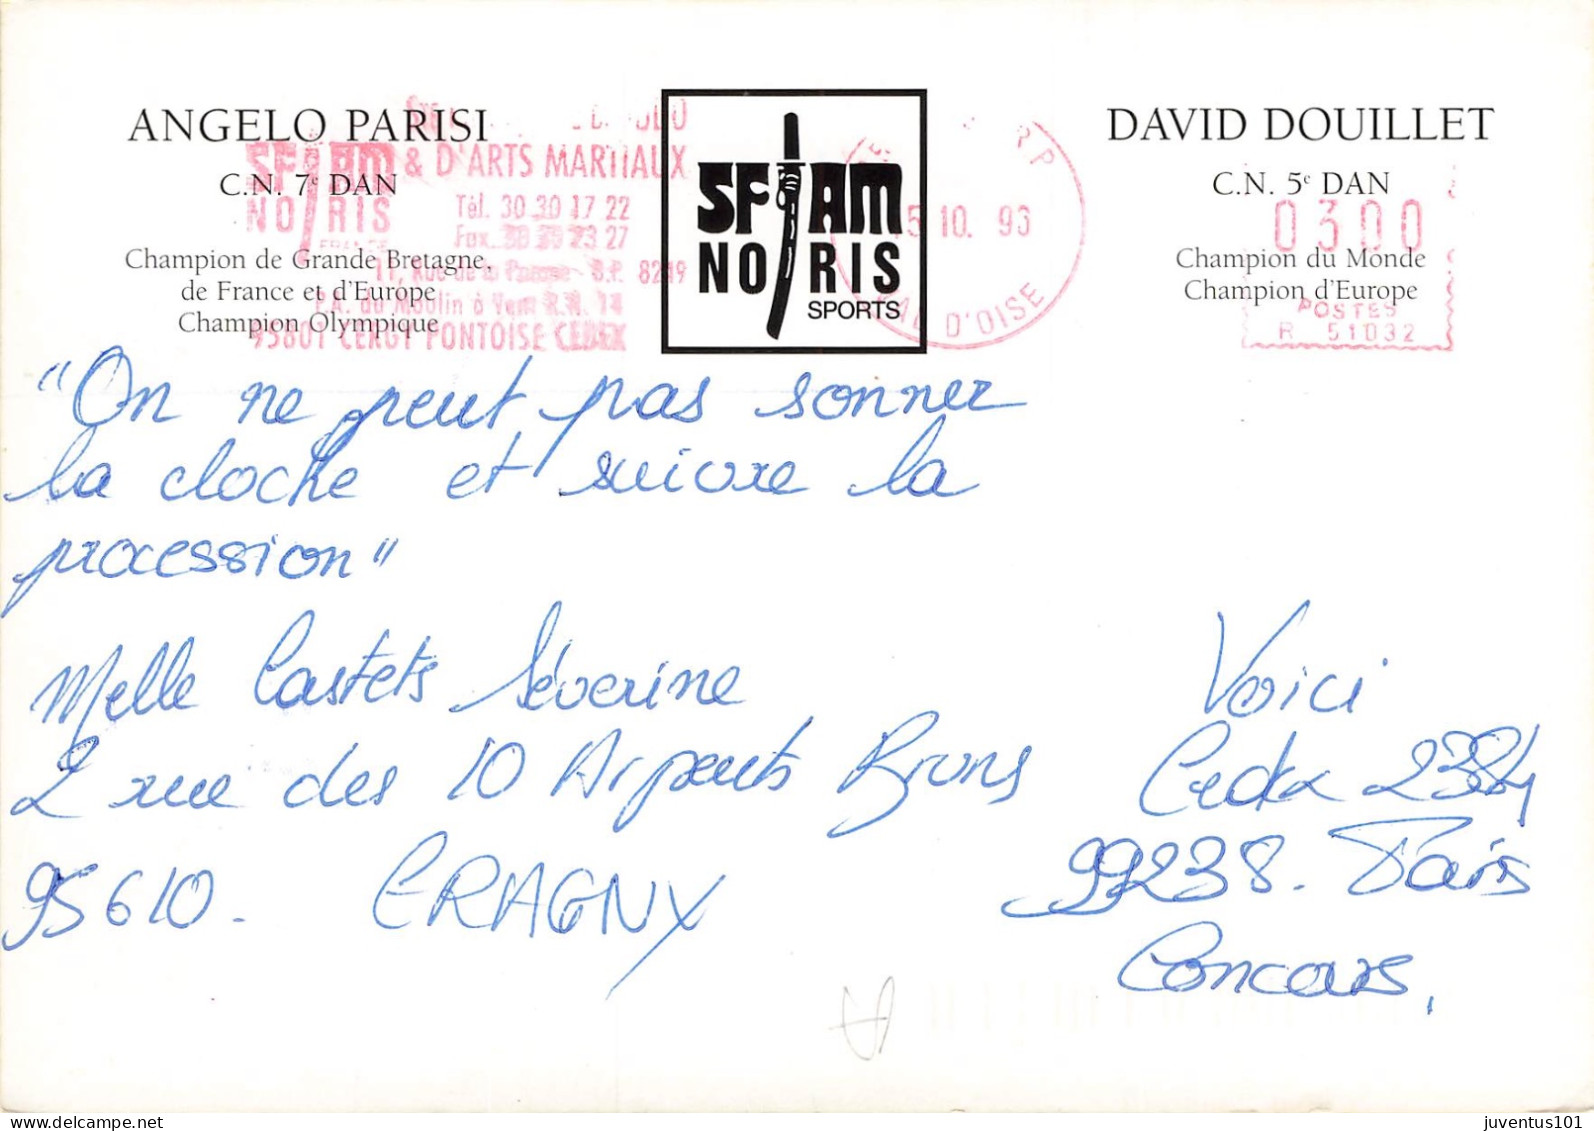 ANGELO PARISI
C.N. 7e DAN
Champion de Grande Bretagne,
de France et d'Europe
Champion Olympique
& D'ARTS MARTIAUX
SFJAM
NORIS
Tél. 30 30 17 22
Fax. 30 30 23 27
11, Rue de la B.P. 8219
P.A. du Moulin à Vent R.N. 14
95801 CERGY PONTOISE CEDEX
SFJAM
NORIS
SPORTS
15.10.96
VAL D'OISE
DAVID DOUILLET
C.N. 5e DAN
Champion du Monde
Champion d'Europe
0300
POSTES
R 51032
"On ne peut pas sonner
la cloche et suivre la
procession"
Melle Castets Séverine
2 rue des 10 Arpents Bruns
95610. ERAGNY
Voici
Cedex 2384
99238. Paris
Concours.
juventus101